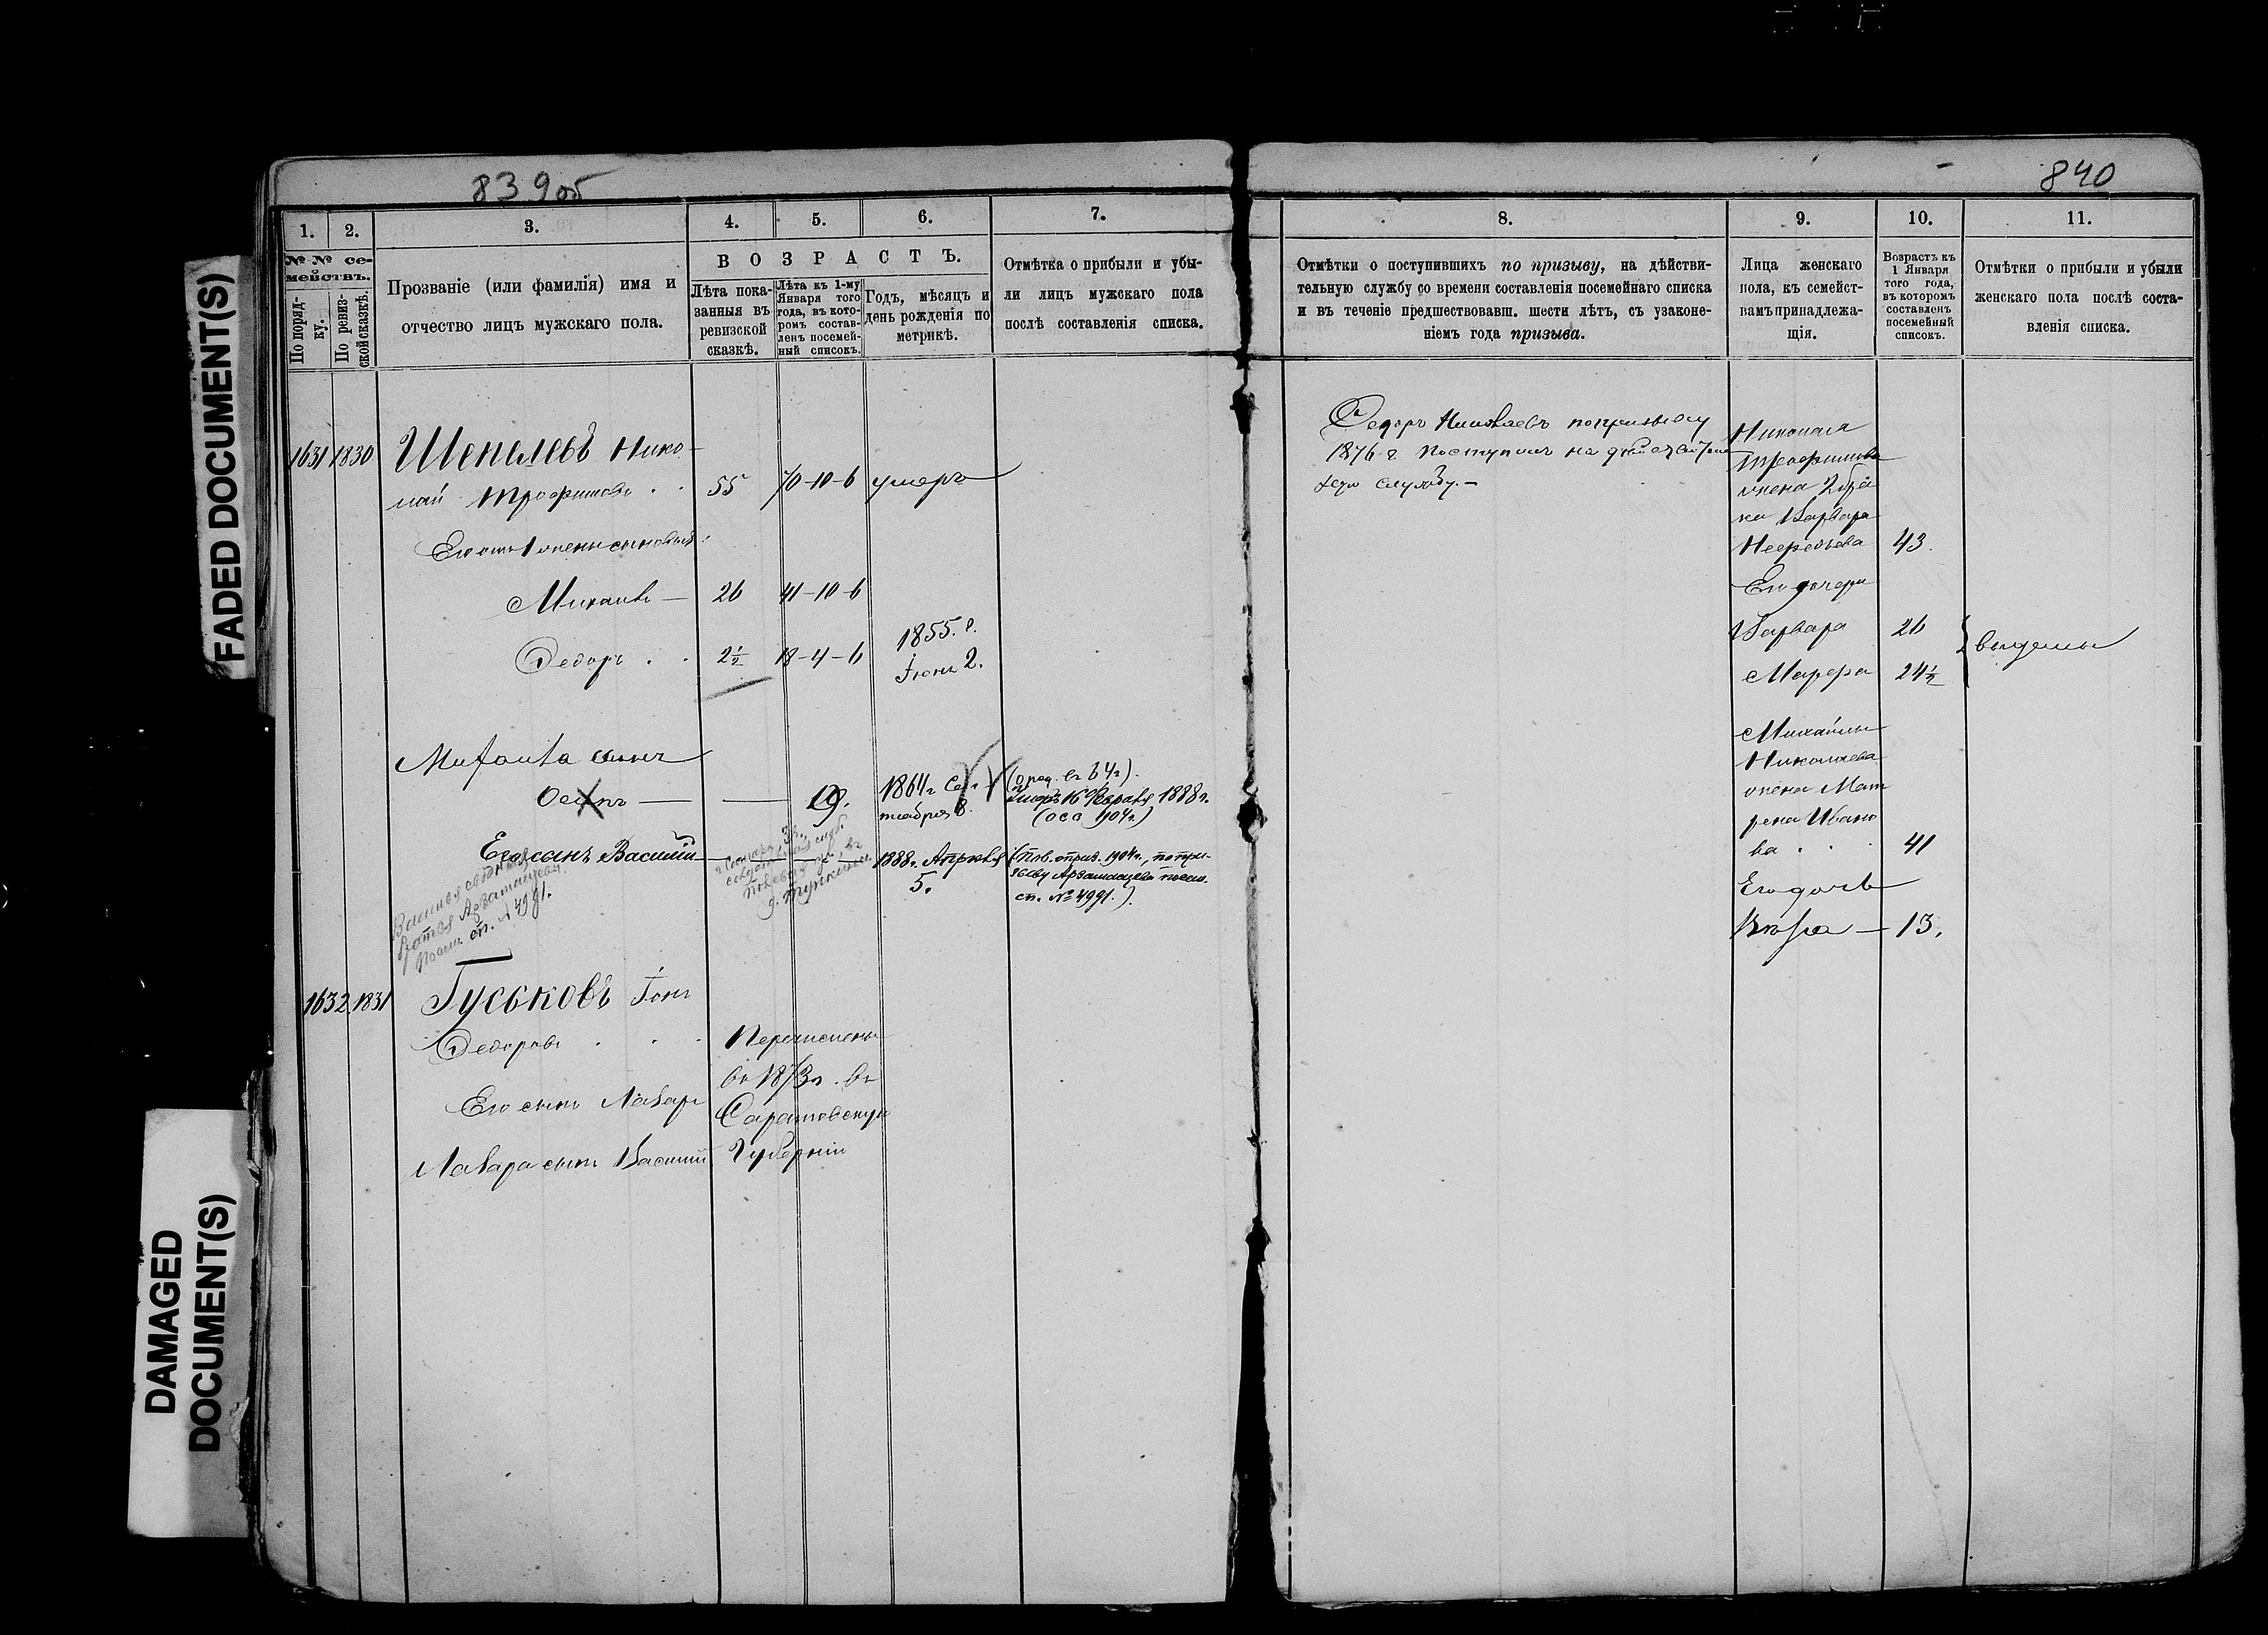 FADED DOCUMENT(S)
DAMAGED
DOCUMENT(S)
839об
1. 2. 3. 4. 5. 6. 7.
№ № се-
мействъ.
По поряд-
ку.
По ревиз-
ской сказкѣ.
Прозваніе (или фамилія) имя и
отчество лицъ мужскаго пола.
ВОЗРАСТЪ.
Лѣта пока-
занныя въ
ревизской
сказкѣ.
Лѣта къ 1-му
Января того
года, въ кото-
ромъ состав-
ленъ посемей-
ный списокъ.
Годъ, мѣсяцъ и
день рожденія по
метрикѣ.
Отмѣтка о прибыли и убы-
ли лицъ мужскаго пола
послѣ составленія списка.
1631 1830 Шепелевъ Нико-
лай Трофимовъ . . 55 70-10-6 умеръ
Его отъ 1 жены сыновья:
Михаилъ — 26 41-10-6
Ѳедоръ . . 2½ 18-4-6 1855 г.
Іюня 2.
Михаила сынъ
Осипъ — — 19. 1864 г. Сен-
тября 8.
Умеръ 16 Февраля 1888 г.
Его сынъ Василій — 1888 г. Апрѣля
5.
сп. № 4991.)
Посем. сп. № 4991.
1632 1831 Гуськовъ Іонъ
Ѳедоровъ . . . Перечислены
въ 1873 г. въ
Его сынъ Лазарь Саратовскую
Лазаря сынъ Василій Губернію
840
8. 9. 10. 11.
Отмѣтки о поступившихъ по призыву, на дѣйстви-
тельную службу со времени составленія посемейнаго списка
и въ теченіе предшествовавш. шести лѣтъ, съ узаконе-
ніемъ года призыва.
Лица женскаго
пола, къ семейст-
вамъ принадлежа-
щія.
Возрастъ къ
1 Января
того года,
въ которомъ
составленъ
посемейный
списокъ.
Отмѣтки о прибыли и убыли
женскаго пола послѣ соста-
вленія списка.
Ѳедоръ Николаевъ по призыву
1876 г. поступилъ на дѣйствитель
службу. —
Николая
Трофимова
жена 2 бра
ка Варвара
43.
Его дочери
Варвара 26
Марѳа 24½
выданы
Михаила
Николаева
жена Мат
рена Ивано
ва . . . 41
Его дочь
Вѣра — 13.